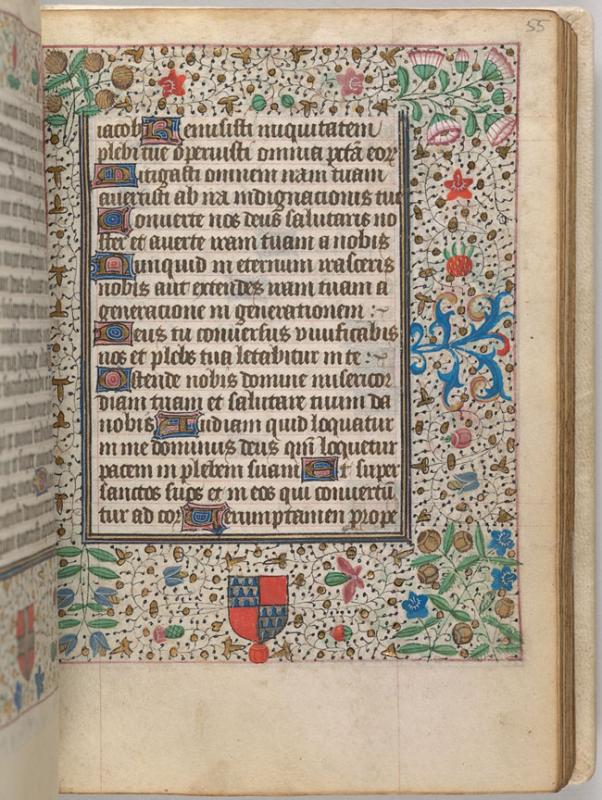 55
iacob Remisisti iniquitatem
plebi tue operuisti omnia pctā eorꝝ
Mitigasti omnem iram tuam
auertisti ab ira indignacionis tue
Conuerte nos deus salutaris no
ster et auerte iram tuam a nobis
Nunquid in eternum irasceris
nobis aut extendes iram tuam a
generacione in generationem :~
Deus tu conuersus viuificabis
nos et plebs tua letabitur in te :~
Ostende nobis domine misericor
diam tuam et salutare tuum da
nobis Audiam quid loquatur
in me dominus deus qm̄ loquetur
pacem in plebem suam Et super
sanctos suos et in eos qui conuertū
tur ad cor Verumptamen prope